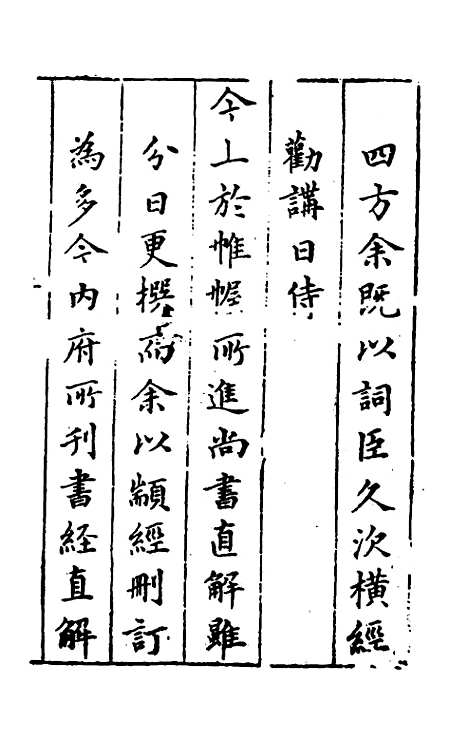 四方余既以詞臣久次橫經
勸講日侍
今上於帷幄所進尚書直解雖
分日更撰而余以顓經刪訂
為多今內府所刋書経直解